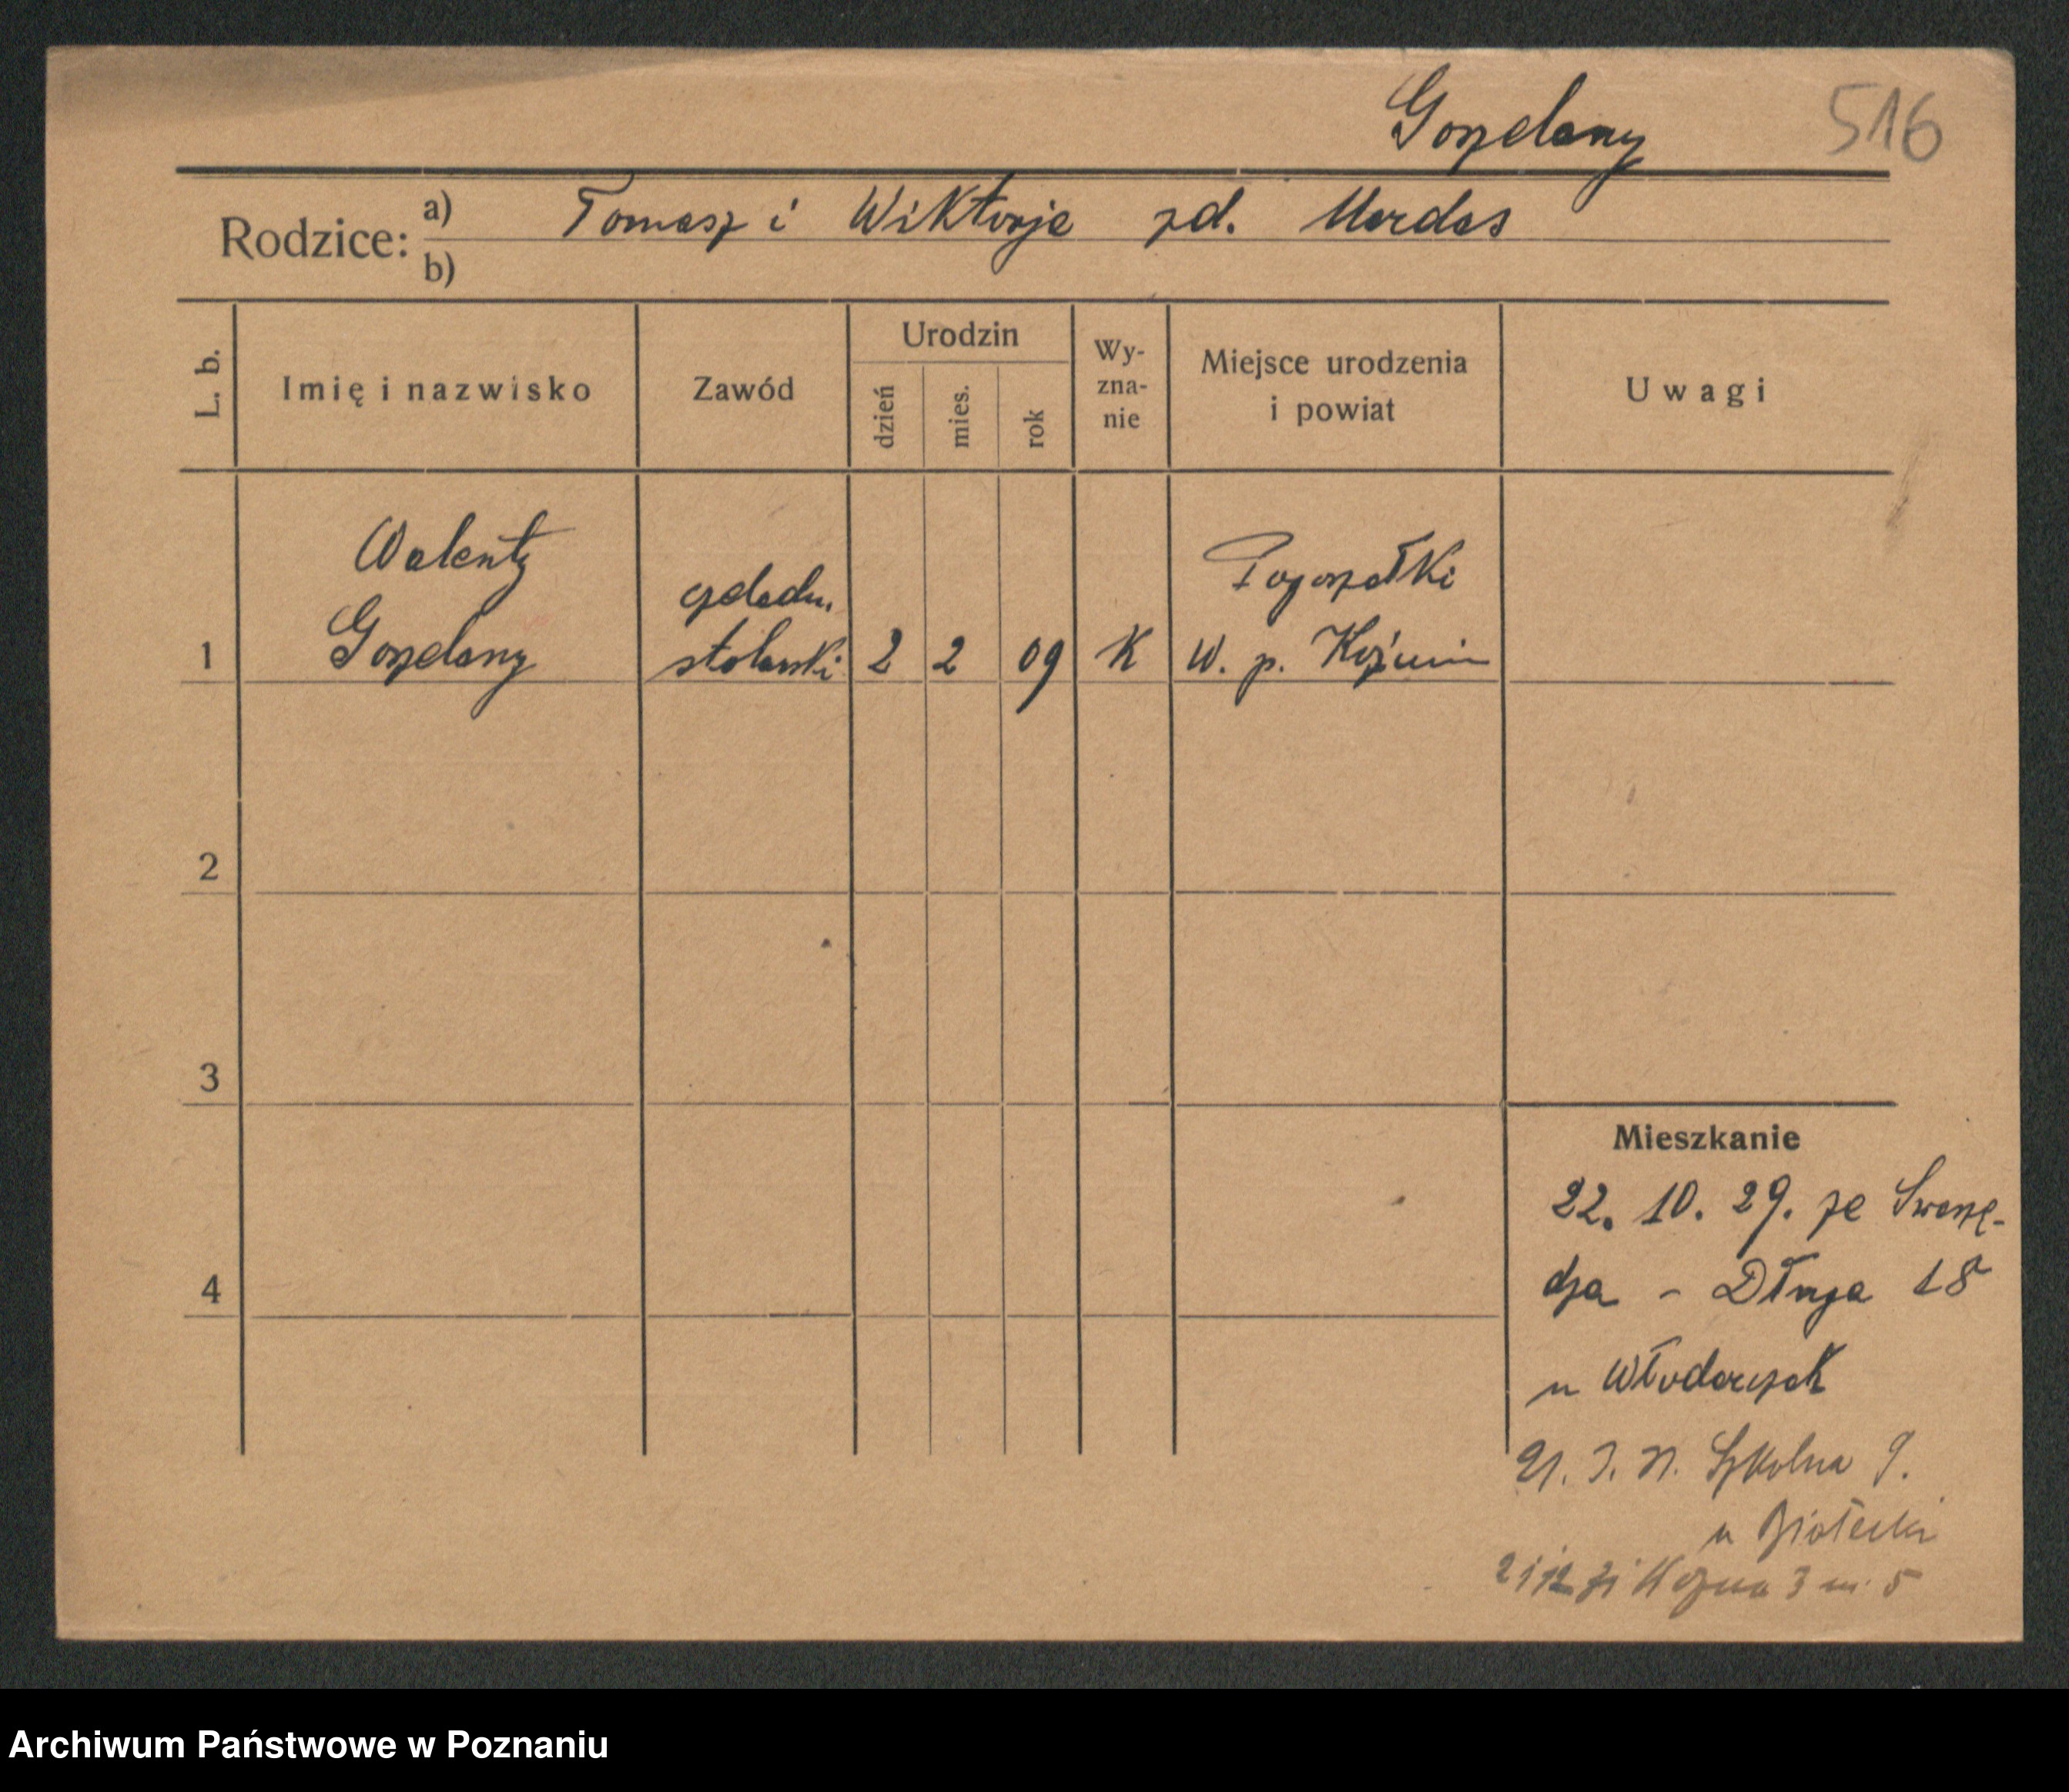 Gozdany 516
Rodzice: a) Tomasz i Wiktorja zd. Mardas
b)
L. b. Imię i nazwisko Zawód Urodzin dzień mies. rok Wyznanie Miejsce urodzenia i powiat Uwagi
Walenty
czeladn. Pogorzałki
1 stolarski 2 2 09 K W. p. Koźmin
2
3
Mieszkanie
22. 10. 29. ze Swarzę-
4
dza - Długa 18
u Włodarczak
Szkolna 9.
u Białecki
3 m. 5
Archiwum Państwowe w Poznaniu